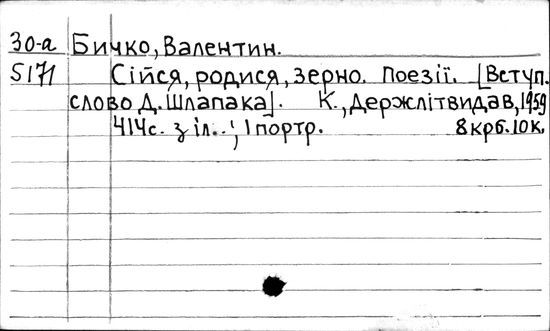 30-а Бичко, Валентин.
5171 Сійся, родися, зерно. Поезії. [Вступ.
слово Д. Шлапака]. К., Держлітвидав, 1959
414с. з іл..; 1 портр. 8 крб. 10 к.